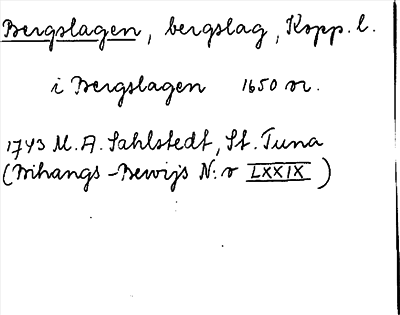 Bergslagen, bergslag, Kopp. l.
i Bergslagen 1650 nr.
1743 M. A. Sahlstedt, St. Tuna
(Bihangs-Bewijs N:r LXXIX)